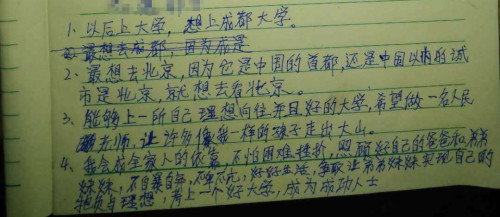 1、以后上大学，想上成都大学。
最想去成都，因为
2、最想去北京，因为它是中国的首都，还是中国以前的城
市是北京，就想去看北京。
3、能够上一所自己理想向往并且好的大学，希望做一名人民
老师，让许多像我一样的孩子走出大山。
4、我会成全家人的依靠，不怕困难挫折，照顾好自己的爸爸和弟弟
妹妹，不自暴自弃，不卑不亢，好好生活，争取让弟弟妹妹实现自己的
与理想，考上一个好大学，成为成功人士